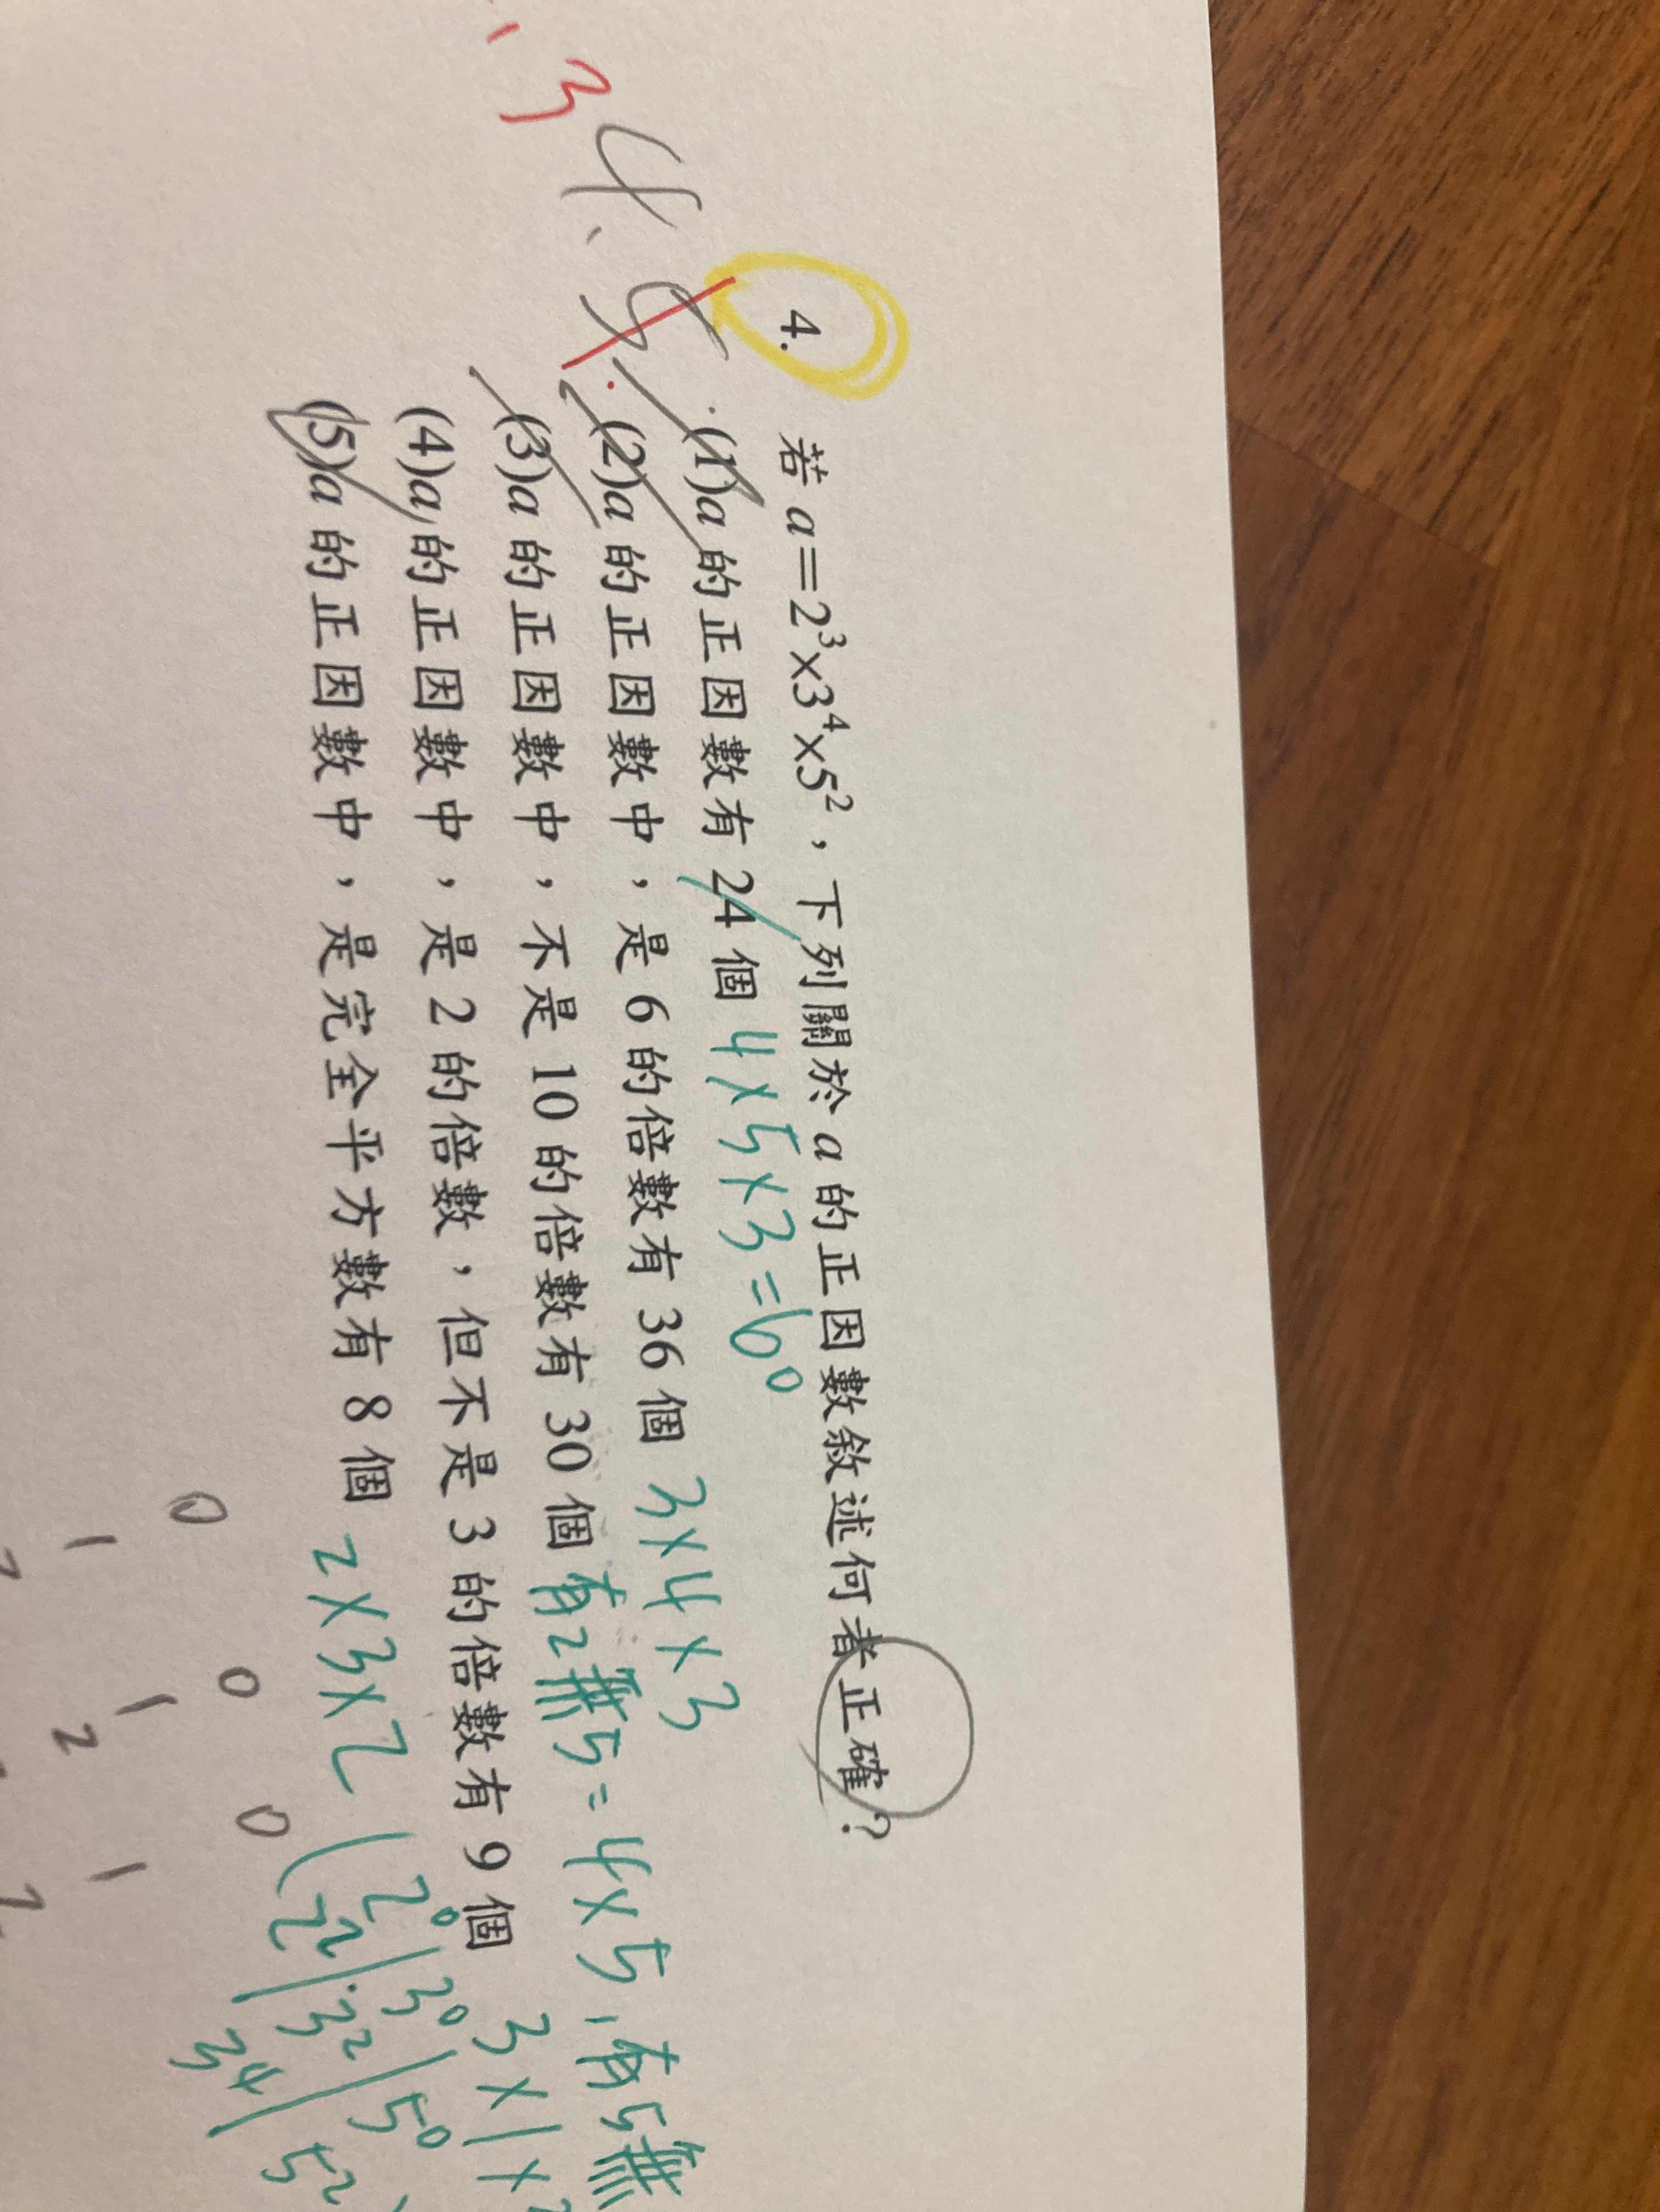 4. 若 a=2³×3⁴×5²,下列關於 a 的正因數敘述何者正確?
(1)a 的正因數有 24 個 4×5×3=60
(2)a 的正因數中,是 6 的倍數有 36 個 3×4×3
(3)a 的正因數中,不是 10 的倍數有 30 個 有2無5=4×5,有5無
(4)a 的正因數中,是 2 的倍數,但不是 3 的倍數有 9 個 3×1×
(5)a 的正因數中,是完全平方數有 8 個 2×3×2
2⁰ 3⁰ 5⁰
2² 3² 5²
3⁴
3 4、5
0 0 0
1 1 1
2